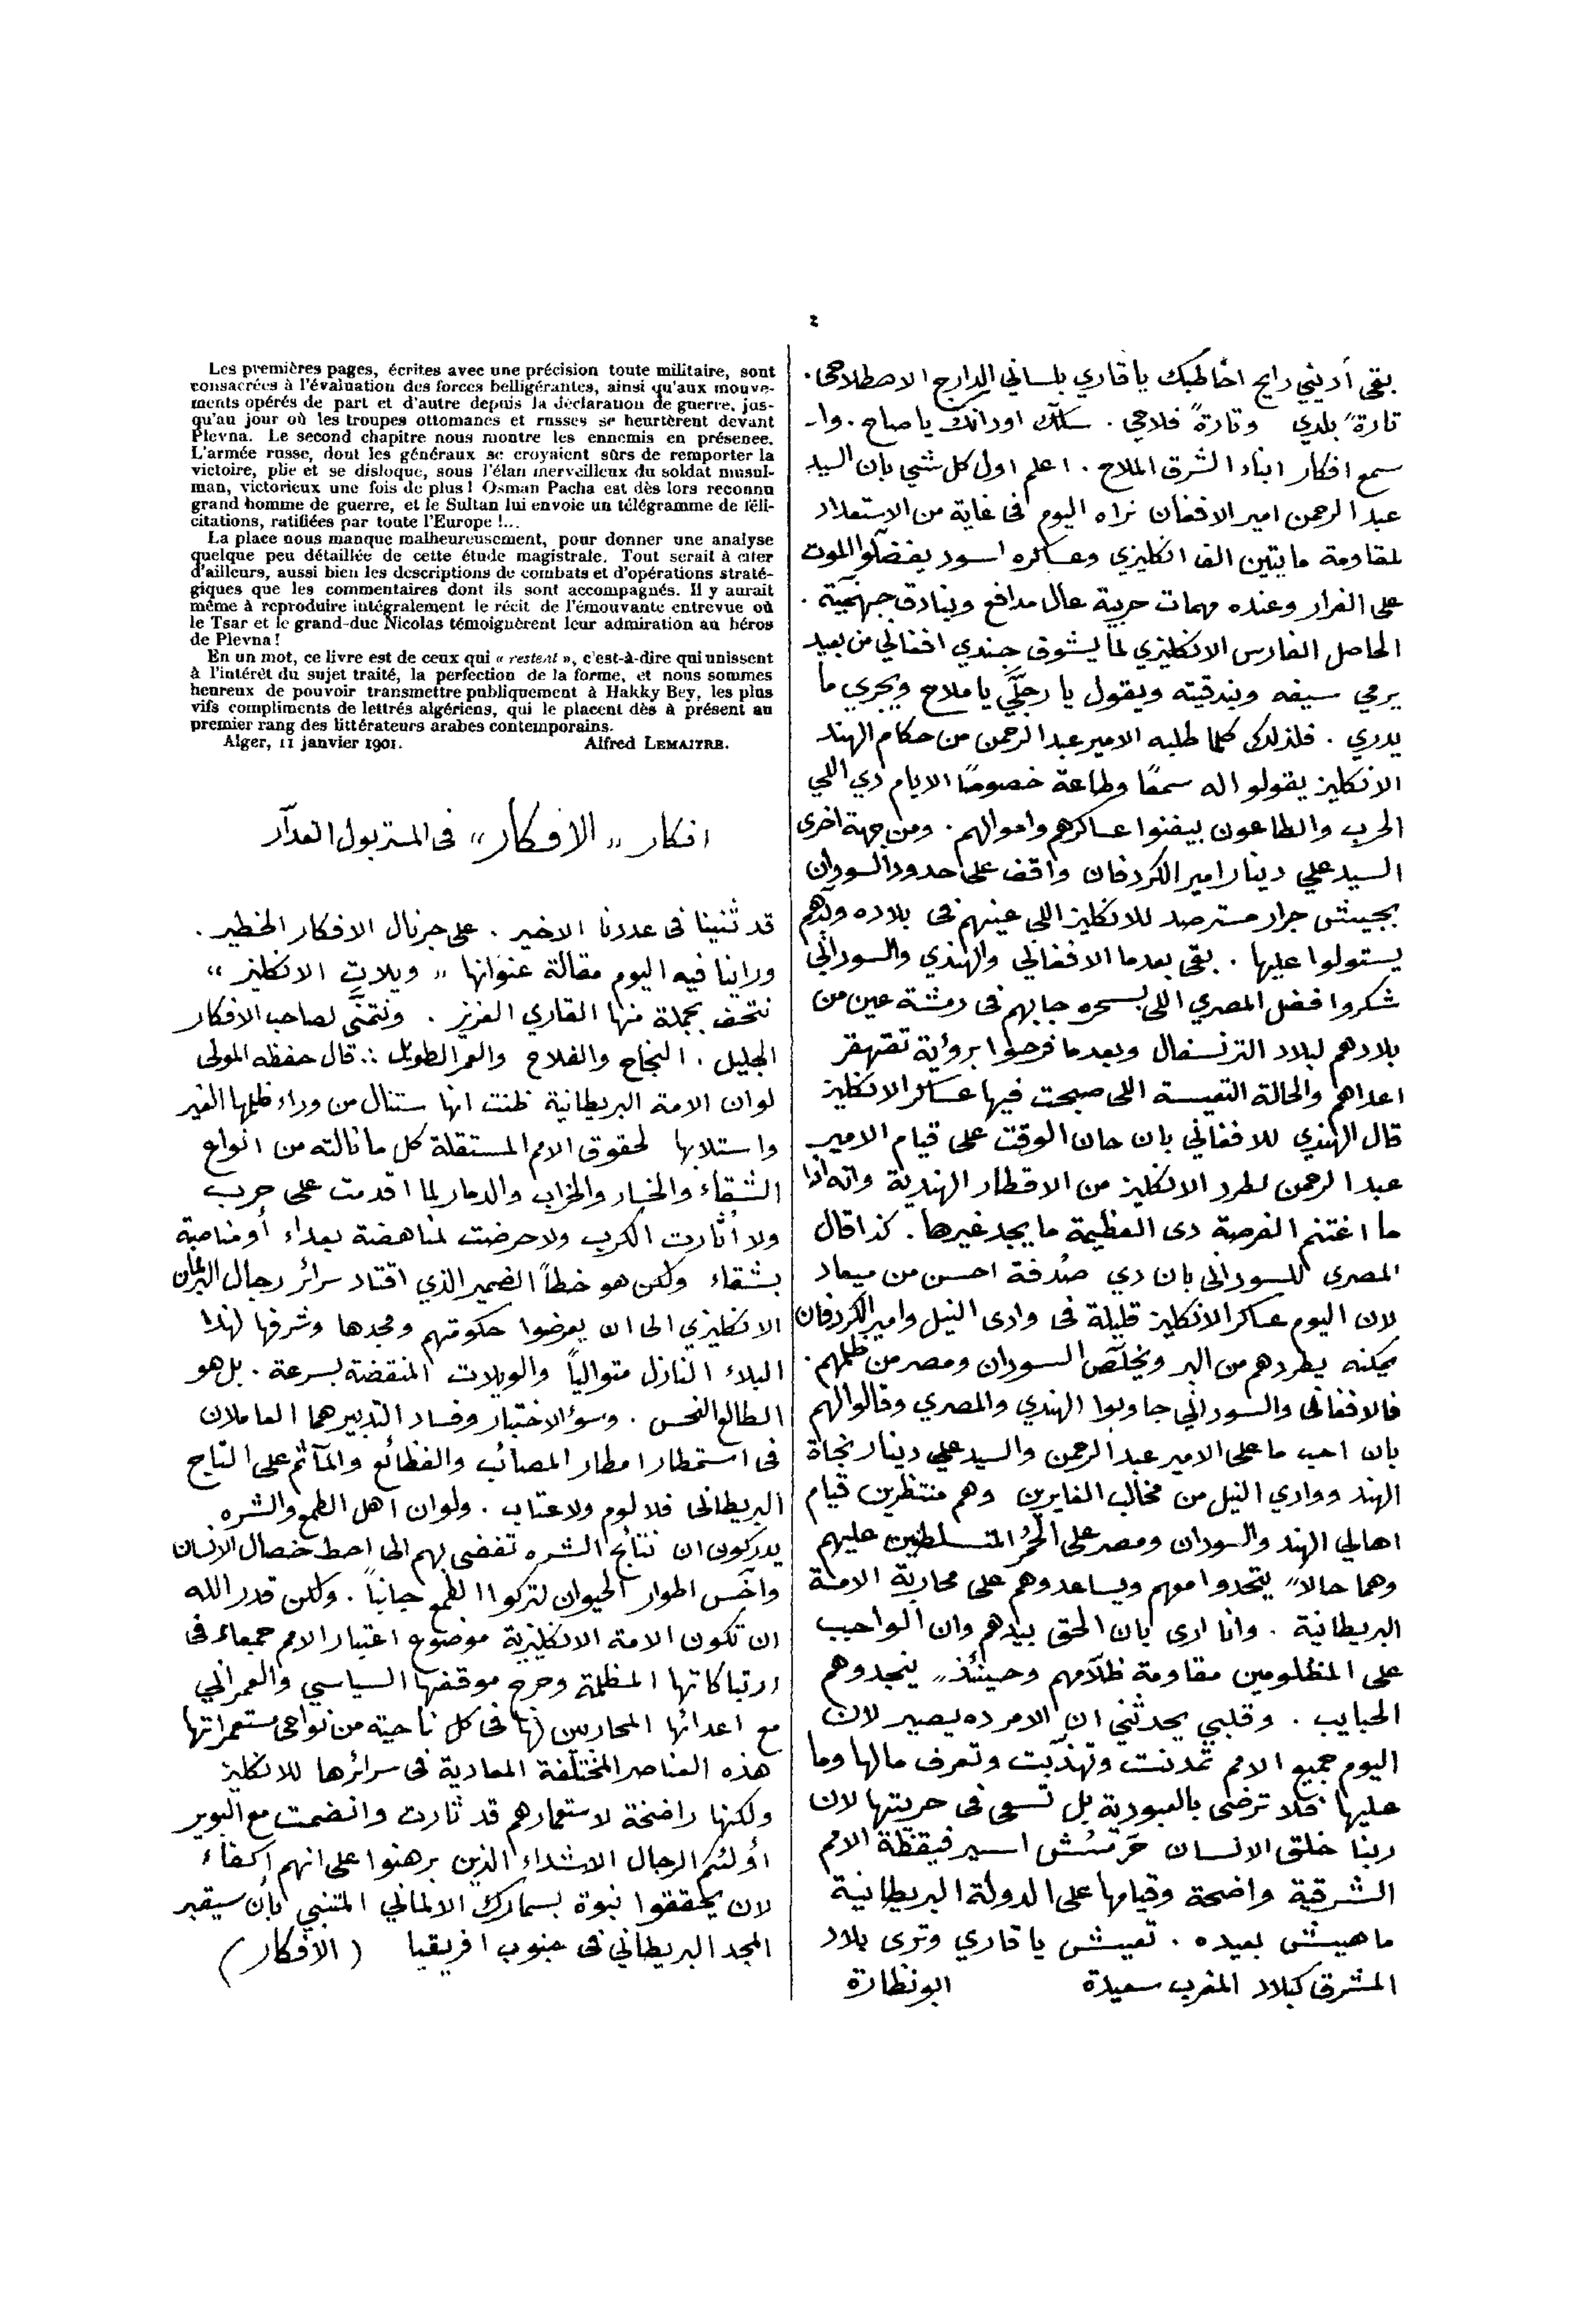 ٤
بقى أديني رايح اخاطبك ياقاري بلساني الدارج الاصطلاحى .
تارةً بلدي وتارةً فلاحي . سلك اودانك ياصاح . وا ـ
سمع افكار ابناء الشرق الملاح . اعلم اول كل شي بان السيد
عبد الرحمن امير الافغان نراه اليوم فى غاية من الاستعداد
لمقاومة مايتين الف انكليزي وعساكره اسود يفضلوا الموت
على الفرار وعنده مهمات حربية عال مدافع وبنادق جهنمية .
الحاصل الفارس الانكليزي لما يشوف جندي افغاني من بعيد
يرمي سيفه وبندقيته ويقول يا رجلَّي يا ملاح ويجري ما
يدري . فلذلك كلما طلبه الامير عبد الرحمن من حكام الهند
الانكليز يقولوا له سمعًا وطاعة خصوصًا الايام دي اللي
الحرب والطاعون بيفنوا عساكرهم واموالهم . ومن جهة اخرى
السيد علي دينار امير الكردفان واقف على حدود السودان
بجيش جرار مسترصد للانكليز اللي عينهم فى بلاده وبدهم
يستولوا عليها . بقى بعدما الافغاني والهندي والسوداني
شكروا فضل المصري اللى بسحره جابهم فى رمشة عين من
بلادهم لبلاد الترنسفال وبعدما فرحوا برؤية تقهقر
اعداهم والحالة التعيسة اللى صبحت فيها عساكر الانكليز
قال الهندي للافغاني بان حان الوقت على قيام الامير
عبد الرحمن لطرد الانكليز من الاقطار الهندية وانه اذا
ما اغتنم الفرصة دى العظيمة ما يجد غيرها . كذا قال
المصرى للسودانى بان دي صُدفة احسن من ميعاد
لان اليوم عساكر الانكليز قليلة فى وادى النيل وامير الكردفان
يمكنه يطردهم من البر ويخلّص السودان ومصر من ظلمهم .
فالافغانى والسوداني جاوبوا الهندي والمصري وقالوا لهم
بان احب ما على الامير عبد الرحمن والسيد علي دينار نجاة
الهند ووادي النيل من مخالب الغايرين وهم منتظرين قيام
اهالي الهند والسودان ومصر على الحُمر المتسلطين عليهم
وهما حالاً يتحدوا معهم ويساعدوهم على محاربة الامة
البريطانية . وانا ارى بان الحق بيدهم وان الواجب
على المظلومين مقاومة ظلّامهم وحينئذٍ ينجدوهم
الحبايب . وقلبي يحدثني ان الامر ده يصير لان
اليوم جميع الامم تمدنت وتهذّبت وتعرف مالها وما
عليها فلا ترضى بالعبودية بل تسعى فى حريتها لان
ربنا خلق الانسان حَر مُش اسير فيقظة الامم
الشرقية واضحة وقيامها على الدولة البريطانية
ماهيش بعيده . تعيش يا قاري وترى بلاد
المشرق كبلاد المغرب سعيدة ابو نظارة
Les premières pages, écrites avec une précision toute militaire, sont
consacrées à l'évaluation des forces belligérantes, ainsi qu'aux mouve-
ments opérés de part et d'autre depuis la déclaration de guerre, jus-
qu'au jour où les troupes ottomanes et russes se heurtèrent devant
Plevna. Le second chapitre nous montre les ennemis en présence.
L'armée russe, dont les généraux se croyaient sûrs de remporter la
victoire, plie et se disloque, sous l'élan merveilleux du soldat musul-
man, victorieux une fois de plus! Osman Pacha est dès lors reconnu
grand homme de guerre, et le Sultan lui envoie un télégramme de féli-
citations, ratifiées par toute l'Europe !...
La place nous manque malheureusement, pour donner une analyse
quelque peu détaillée de cette étude magistrale. Tout serait à citer
d'ailleurs, aussi bien les descriptions de combats et d'opérations straté-
giques que les commentaires dont ils sont accompagnés. Il y aurait
même à reproduire intégralement le récit de l'émouvante entrevue où
le Tsar et le grand-duc Nicolas témoignèrent leur admiration au héros
de Plevna!
En un mot, ce livre est de ceux qui « restent », c'est-à-dire qui unissent
à l'intérêt du sujet traité, la perfection de la forme, et nous sommes
heureux de pouvoir transmettre publiquement à Hakky Bey, les plus
vifs compliments de lettrés algériens, qui le placent dès à présent au
premier rang des littérateurs arabes contemporains.
Alger, 11 janvier 1901. Alfred LEMAITRE.
افكار „ الافكار " فى المستر بول الغدّار
قد ثنينا فى عددنا الاخير . على جرنال الافكار الخطير .
وراينا فيه اليوم مقالة عنوانها „ ويلات الانكليز "
نتحف بجملة منها القاري العزيز . ونتمنَّى لصاحب الافكار
الجليل . النجاح والفلاح والعمر الطويل ∴ قال حفظه المولى
لو ان الامة البريطانية ظنت انها ستنال من وراء ظلمها الغير
واستلابها لحقوق الامم المستقلة كل ما نالته من انواع
الشقاء والخسار والخراب والدمار لما اقدمت على حرب
ولا أثارت الكرب ولا حرضت لمناهضة بعداء أو مناصبة
بشقاء ولكن هو خطأ الضمير الذي اقتاد سرائر رجال البرلمان
الانكليزي الى ان يعرضوا حكومتهم ومجدها وشرفها لهذا
البلاء النازل متوالياً والويلات المنقضة بسرعة . بل هو
الطالع النحس . وسؤ الاختيار وفساد التدبير هما العاملان
فى استمطار امطار المصائب والفظائع والمآثم على التاج
البريطانى فلا لوم ولا عتاب . ولو ان اهل الطمع والشره
يدركون ان نتائج الشره تفضى بهم الى احط خصال الانسان
وأخس اطوار الحيوان لتركوا الطمع جانباً . ولكن قدر الله
ان تكون الامة الانكليزية موضوع اعتبار الامم جمعاء فى
ارتباكاتها المظلمة وحرج موقفها السياسي والعمراني
مع اعدائها المحاربين لها فى كل ناحية من نواحى مستعمراتها
هذه العناصر المختلفة المعادية فى سرائرها للانكليز
ولكنها راضخة لاستعمارهم قد ثارت وانضمت مع البوير
أولئكم الرجال الاشداء الذين برهنوا على انهم أكفاء
لان يحققوا نبوة بسمارك الالماني المتنبي بأن سيقبر
المجد البريطاني فى جنوب افريقيا (الافكار)